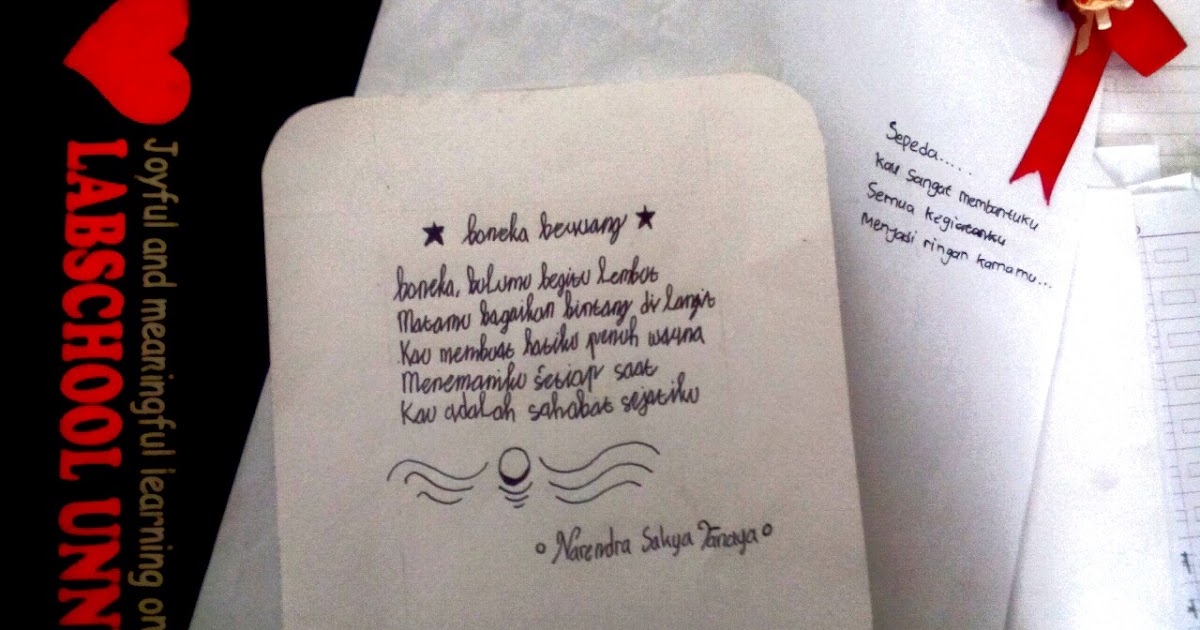 Joyful and meaningful learning on
LABSCHOOL UNN
★ boneka beruang ★
boneka, bulumu begitu lembut
Matamu bagaikan bintang di langit
Kau membuat hatiku penuh warna
Menemaniku setiap saat
Kau adalah sahabat sejatiku
Narendra Satya Tanaya
Sepeda.....
kau sangat membantuku
Semua kegiatanku
Menjadi ringan karnamu...